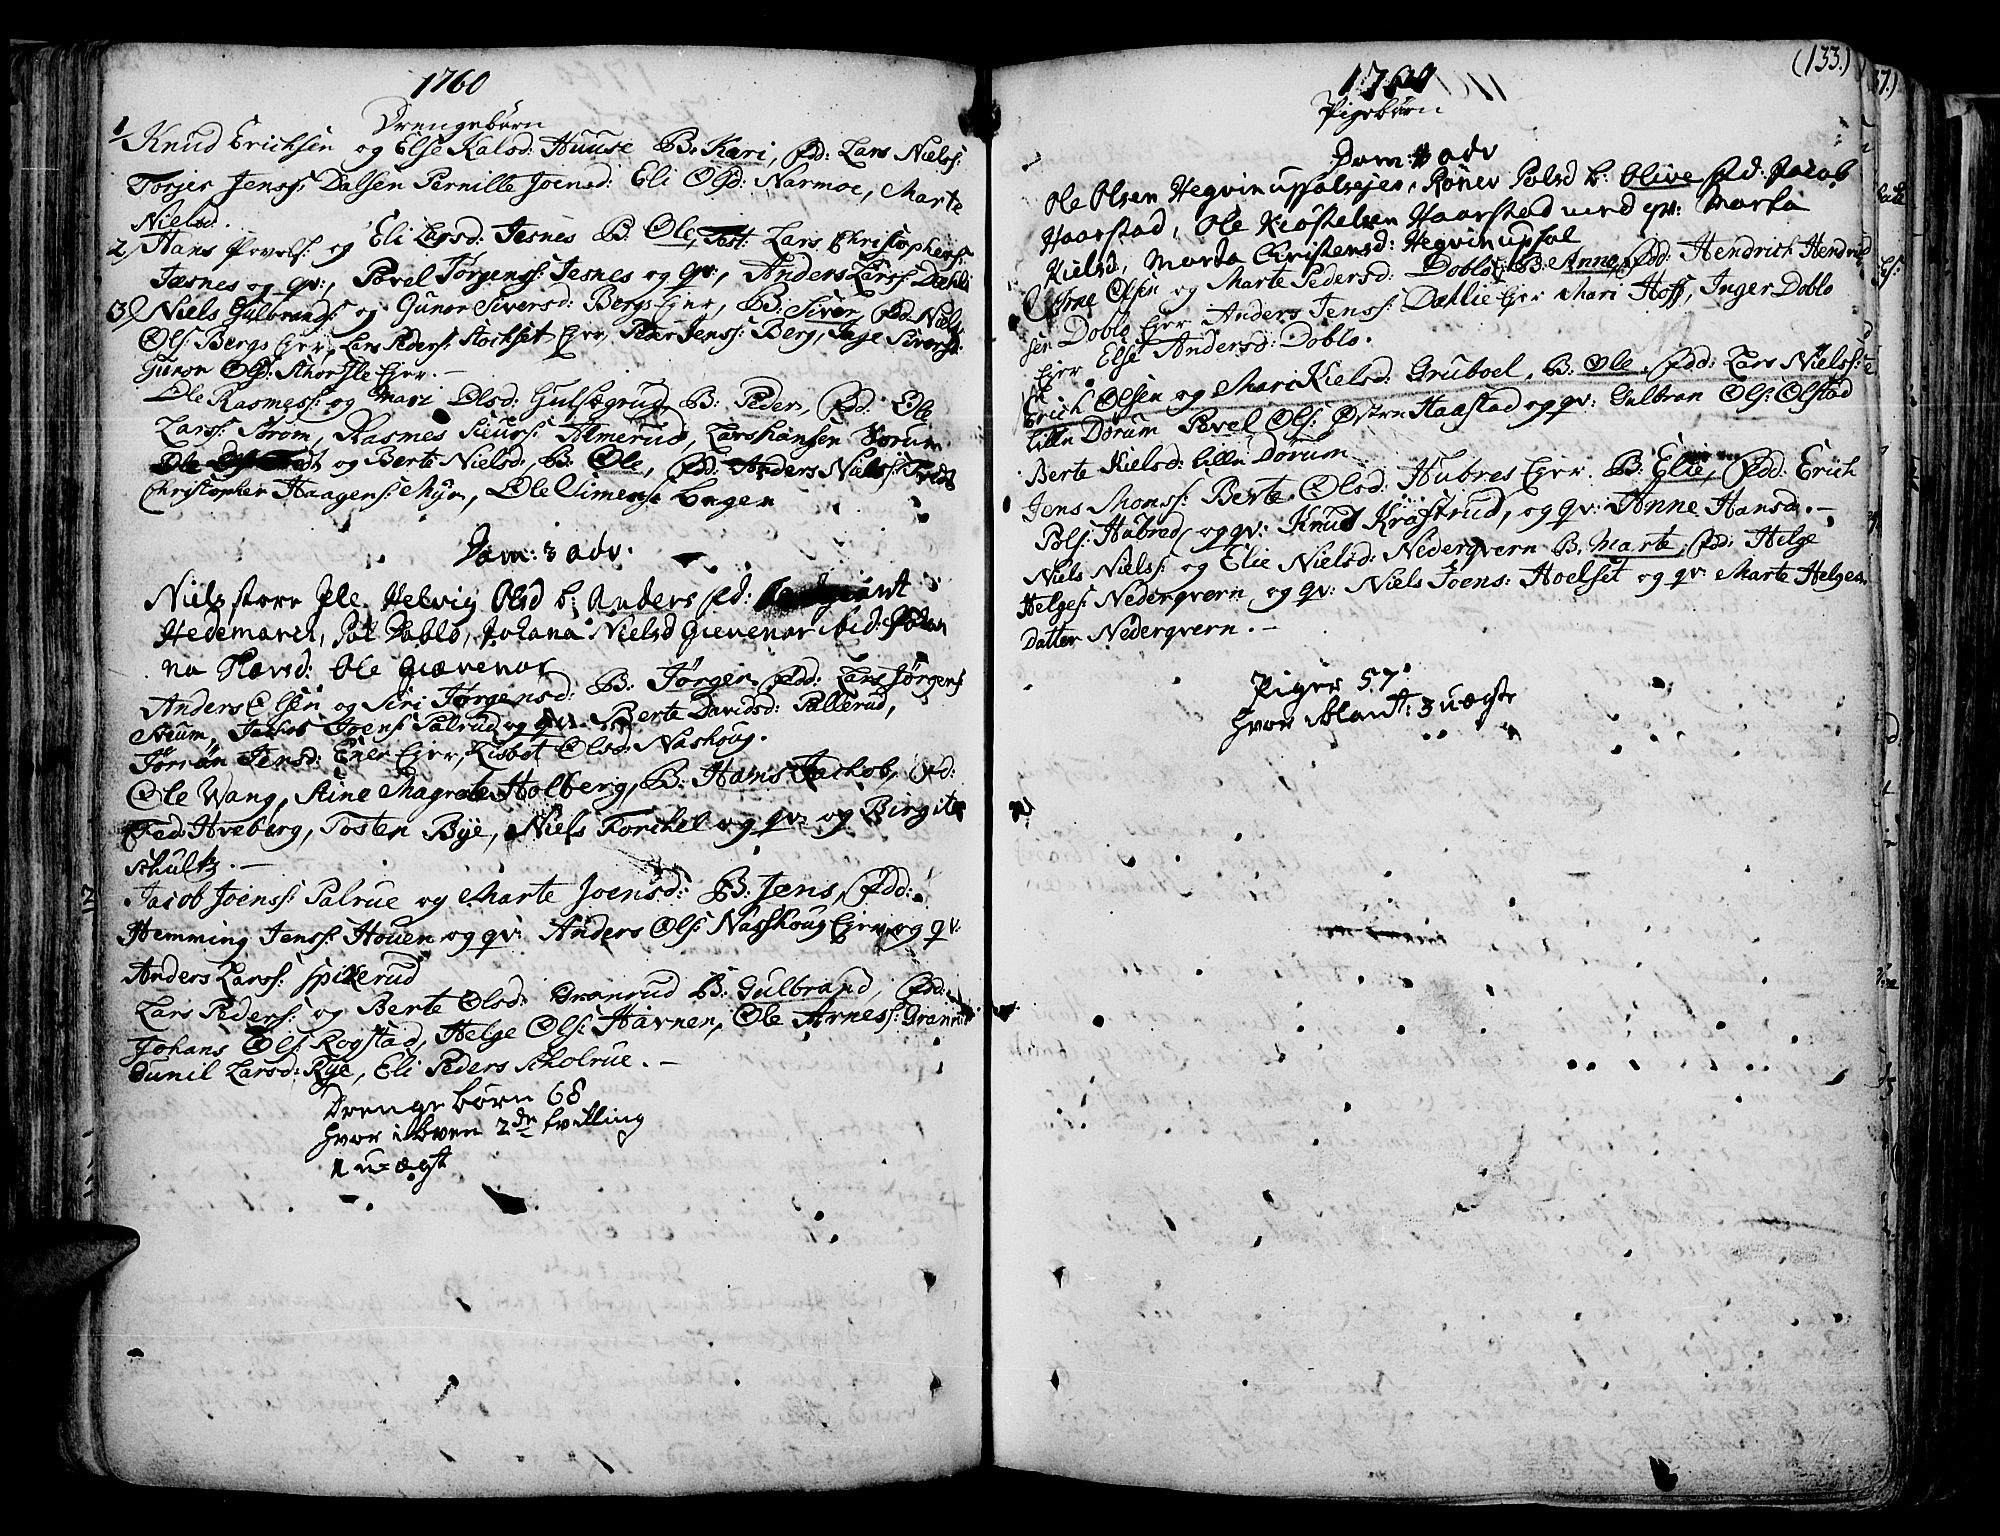 1760
Drengebørn
1/ Knud Erichsen og Else Kalsd: Huuse B: Kari, fdd: Lars Nielss:
Torjer Jenss: Dalsen Pernille Joensd: Eli Olsd: Narmoe, Marte
Nielsd.
2) Hans Povels: og Eli Larsd: Jesnes B: Ole, Test: Lars Christophers:
Jesnes og qv:, Povel Jørgenss: Jesnes og qv:, Anders Larss: Dæhli
3) Niels Gulbrands: og Guner Siversd: Bergs Ejer, B: Siver, fdd: Niels
Ols: Bergs Ejer, Lars Peders: Stochset Ejer, Peder Jenss: Berg, Inge Siversd:
Guron Olsd: Ejer. –
Ole Rasmess: og Mari Olsd: B: Peder, fdd: Ole
Larss: Strøm, Rasmes Almerud, Lars Hansen Dorum
og Berte Nielsd, B: Ole, fdd: Anders Niels:
Christopher Haagens: Myr, Ole Simens: Engen
Dom: 3 adv.
Niels støre Ile Helvig Olsd b: Anders fd:
Hedemarch, Pol Doblo, Johana Nielsd Giævenor ibid:
na Ole Giævenor
Anders Olsen og Siri Jørgensd: B: Jørgen, fdd: Lars Jørgens
Jachob Joens: Palrud og qv: Berte Davidsd: Pallerud,
Jensd: Ejer, Lisbet Olsd: Nashoug.
Ole Wang, Stine Magrete Holberg, B: Hans Jachob, fd:
Hveberg, Tosten Bye, Niels Torchel og qv: og Birgite
Schultz. –
Jacob Joenss: Palrue og Marte Joensd: B: Jens, fdd:
Hemming Jenss: Houen og qv: Anders Ols: Nasshoug Ejer og qv:
Anders Larss: Spikerud
Lars Peders: og Berte Olsd: Granrud B: Gulbrand, fdd:
Johans Ols: Rogstad, Helge Ols: Havnen, Ole Arness: Granrud
Gunil Larsd: Rye, Eli Peders Skolrue. –
Drenge børn 68
hvor iblven 2de tvilling
1 u=ægt
(133.)
1760
Pigebørn
Dom: 3 adv
Ole Olsen Hegvin upsalsejer, Røner Polsd b: Olive fd: Jacob
Haarstad, Ole Kiøstelsen Haarstad med qv: Marta
Kielsd, Marta Christensd: Hegvin upsal
Arne Olsen og Marte Pedersd: Doblo, B: Anne, fdd: Hendrich Hendrich
sen Doblo Ejer, Anders Jens: Dæhlie Ejer Mari Hoff, Inger Doblo
Ejer Else Andersd: Doblo.
Erich Olsen og Mari Kielsd: Gruboel, B: Ole, fdd: Lars Nielss:
lille Dorum Povel Ols: Østen Haastad og qv: Gulbran Ols: Olstad
Berte Kielsd: lille Dorum
Jens Monss: Berte Olsd: Hubres Ejer B: Elie, fdd: Erich
Pols: Hubred, og qv: Knud Krøstrud, og qv: Anne Hansd. –
Niels Niels: og Elie Nielsd: Nederqvern B: Marte, fdd: Helge
Helges: Nederqvern, og qv: Niels Joens: Hoelset og qv: Marte Helges
Datter Nederqvern. –
Piger 57
hvor iblant: 3 uægte